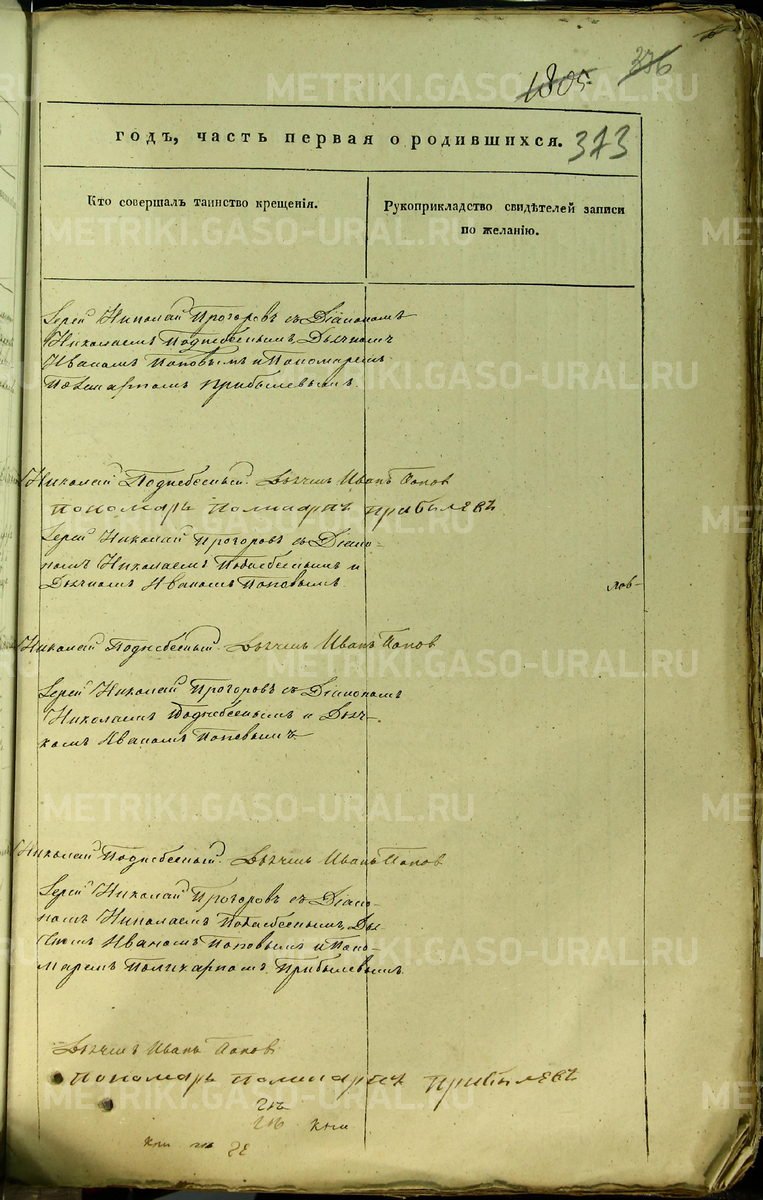 1805
376
годъ, часть первая о родившихся.
373
Кто совершалъ таинство крещенія.
Рукоприкладство свидѣтелей записи
по желанію.
Іерей Николай Прозоровъ съ Діакономъ
Николаемъ Поднебеснымъ, Дьячкомъ
Иваномъ Поповымъ и Пономаремъ
Поликарпомъ Прибылевымъ.
Николай Поднебесный. Дьячекъ Иванъ Попов
пономарь поликарпъ прибылевъ
Іерей Николай Прозоровъ съ Діако-
номъ Николаемъ Поднебеснымъ и
Дьячкомъ Иваномъ Поповымъ
Николай Поднебесный. Дьячекъ Иванъ Попов
Іерей Николай Прозоровъ съ Діакономъ
Николаемъ Поднебеснымъ и Дьяч-
комъ Иваномъ Поповымъ
Николай Поднебесный. Дьячекъ Иванъ Попов
Іерей Николай Прозоровъ съ Діако-
номъ Николаемъ Поднебеснымъ, Дья-
Иваномъ Поповымъ и Поно-
маремъ Поликарпомъ Прибылевымъ
Дьячекъ Иванъ Попов
пономарь поликарпъ прибылевъ
METRIKI.GASO-URAL.RU